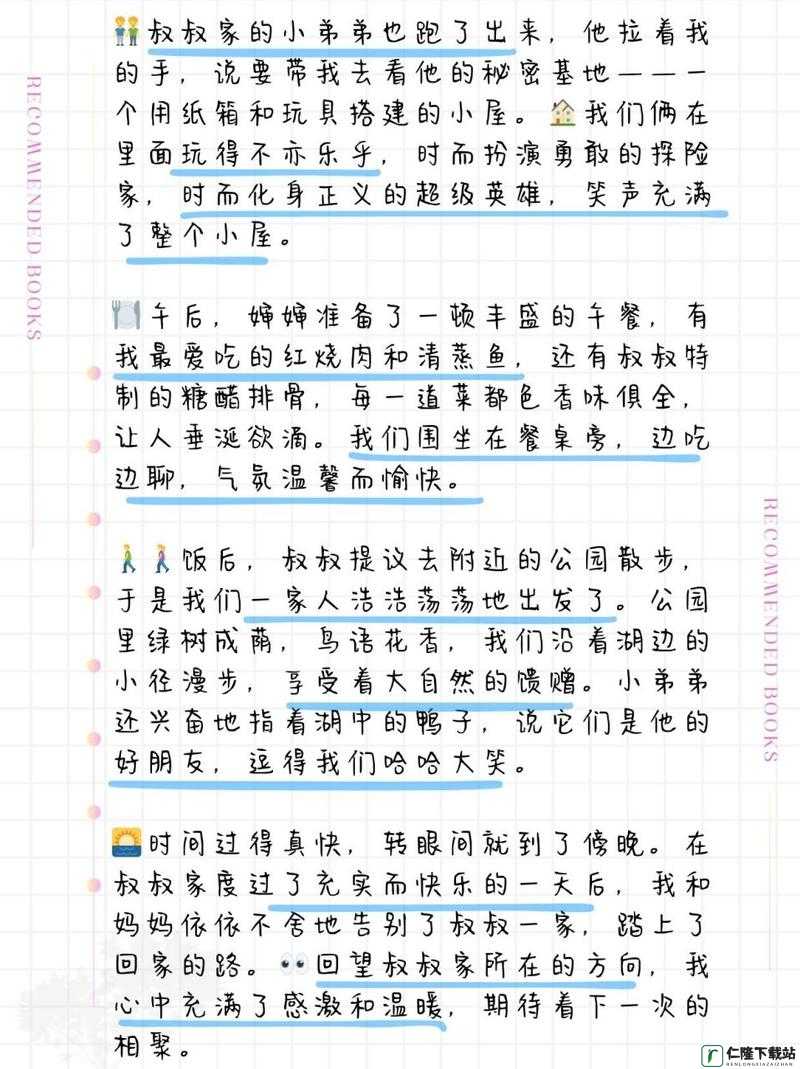 叔叔家的小弟弟也跑了出来，他拉着我
的手，说要带我去看他的秘密基地——一
个用纸箱和玩具搭建的小屋。我们俩在
里面玩得不亦乐乎，时而扮演勇敢的探险
家，时而化身正义的超级英雄，笑声充满
了整个小屋。
午后，婶婶准备了一顿丰盛的午餐，有
我最爱吃的红烧肉和清蒸鱼，还有叔叔特
制的糖醋排骨，每一道菜都色香味俱全，
让人垂涎欲滴。我们围坐在餐桌旁，边吃
边聊，气氛温馨而愉快。
饭后，叔叔提议去附近的公园散步，
于是我们一家人浩浩荡荡地出发了。公园
里绿树成荫，鸟语花香，我们沿着湖边的
小径漫步，享受着大自然的馈赠。小弟弟
还兴奋地指着湖中的鸭子，说它们是他的
好朋友，逗得我们哈哈大笑。
时间过得真快，转眼间就到了傍晚。在
叔叔家度过了充实而快乐的一天后，我和
妈妈依依不舍地告别了叔叔一家，踏上了
回家的路。👀回望叔叔家所在的方向，我
心中充满了感激和温暖，期待着下一次的
相聚。
RECOMMENDED BOOKS
RECOMMENDED BOOKS
仁隆下载站
RENLONGXIAZAIZHAN